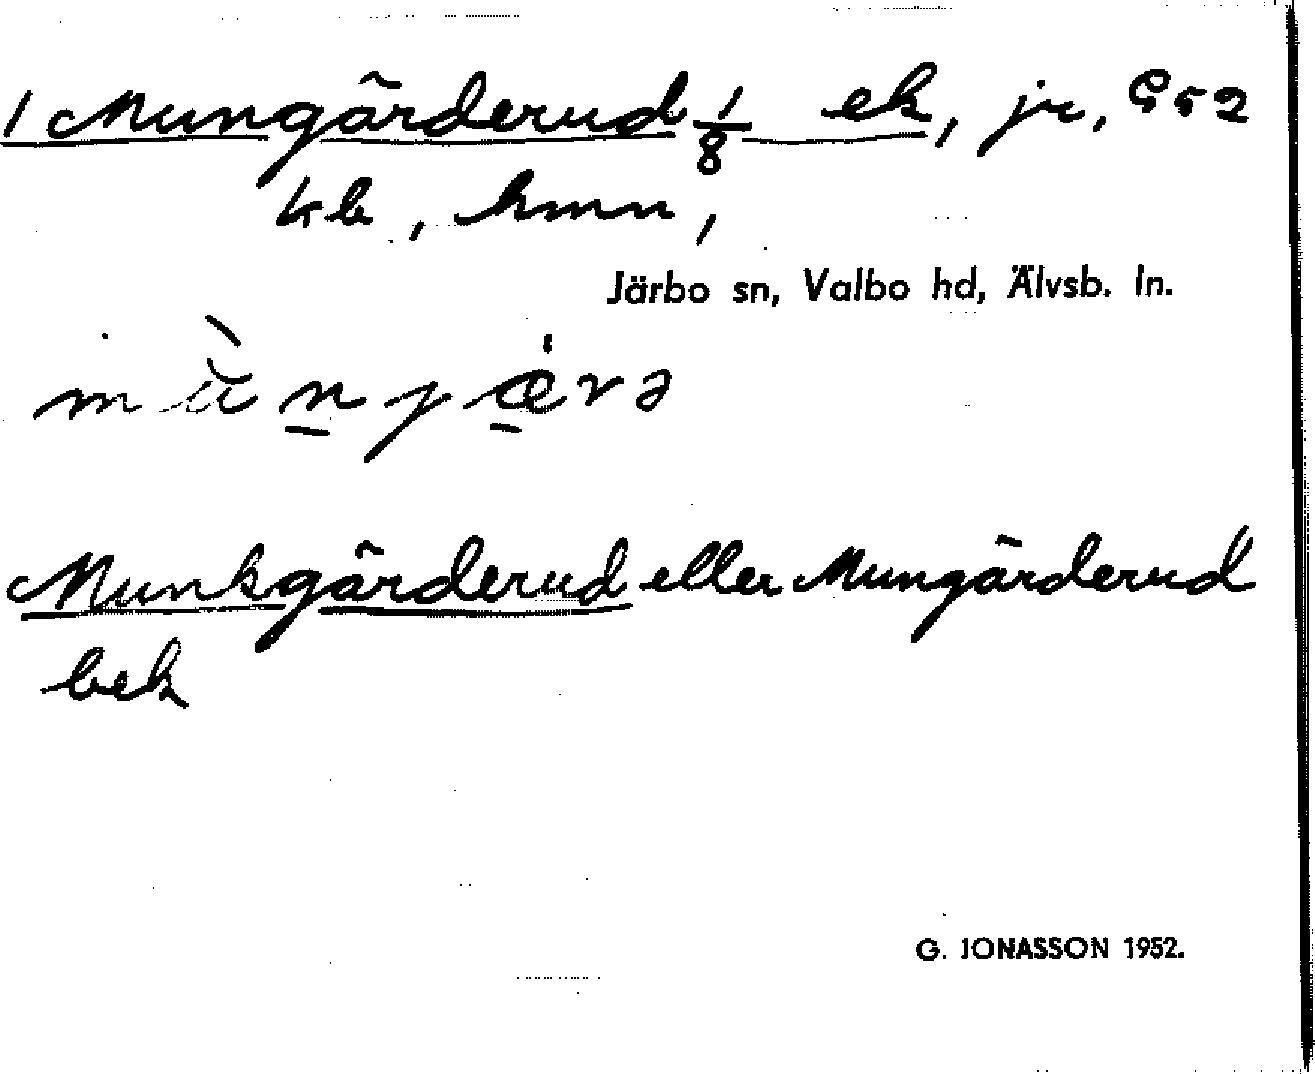 1 Mungärderud 1/8 ek, jr, G 52
kb, hmn,
Järbo sn, Valbo hd, Älvsb. ln.
Munkgärderud eller Mungärderud
bek
G. JONASSON 1952.